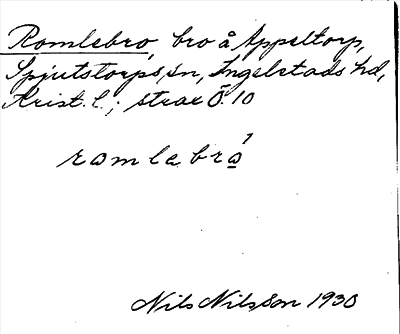 Romlebro, bro å Äppeltorp,
Spjutstorps sn, Ingelstads hd,
Krist. l.; strax Ö. 10
ramlebrǫ́
Nils Nilsson 1930